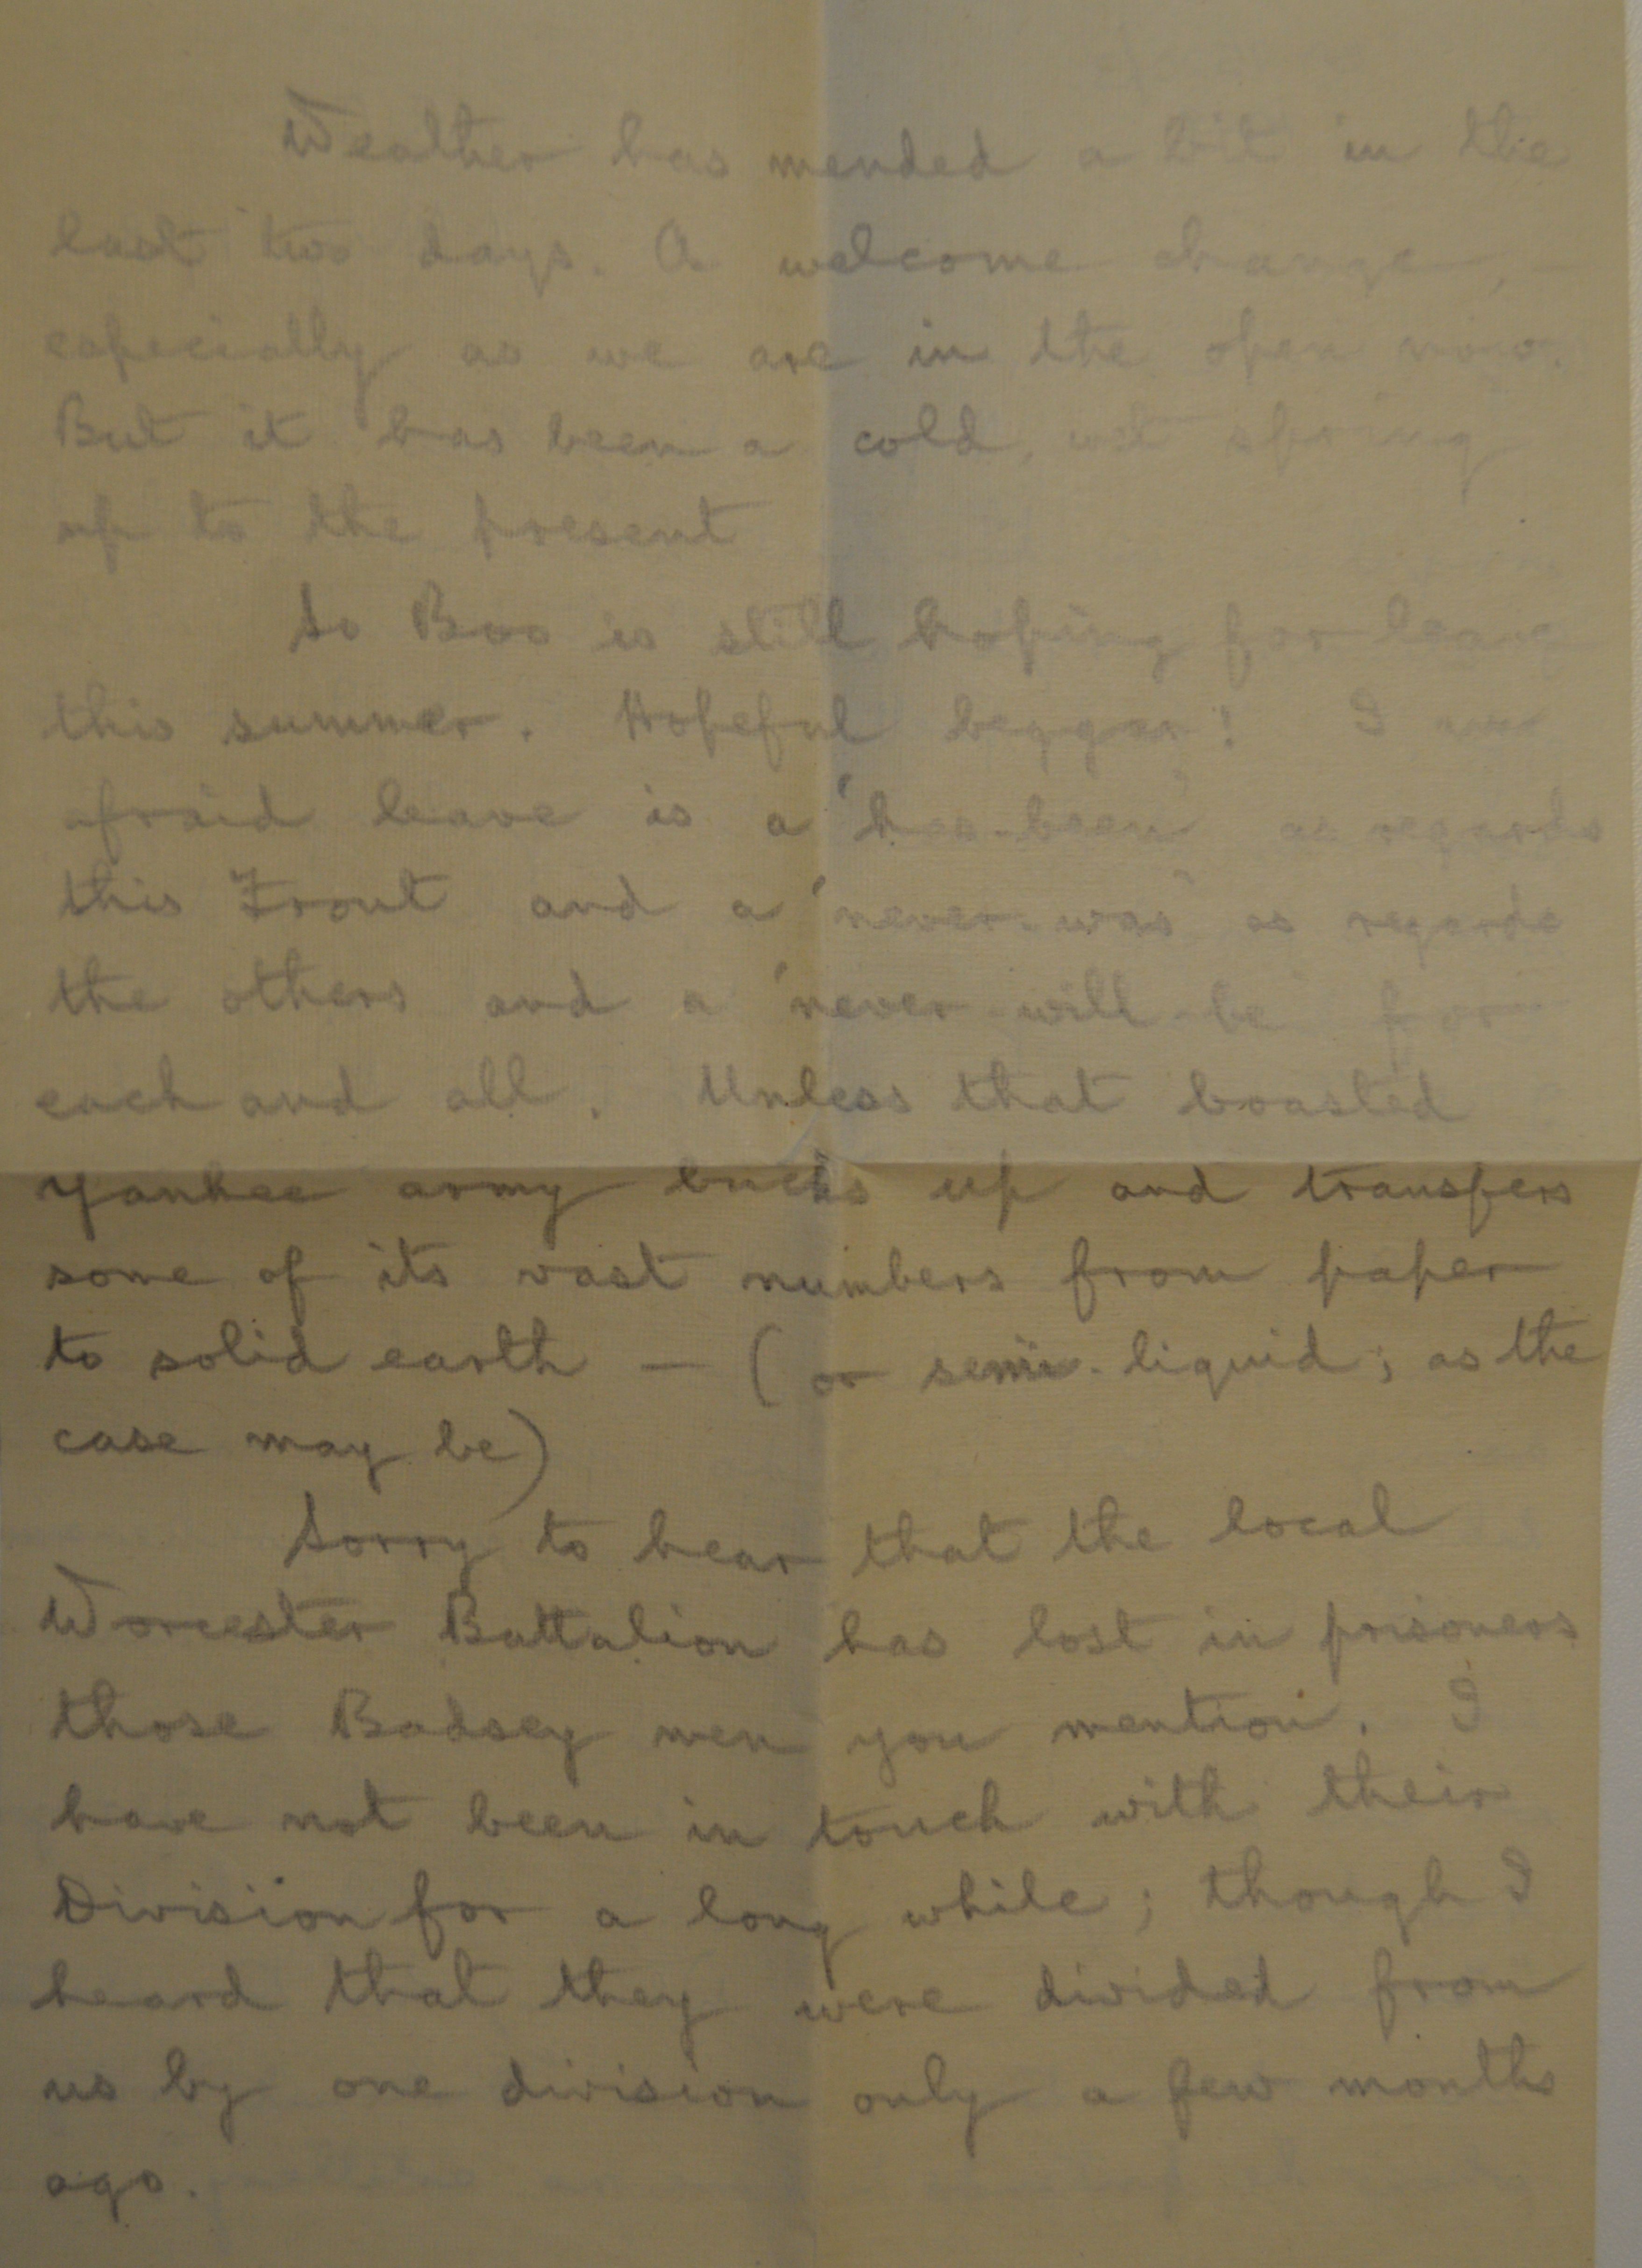 Weather has mended a bit in the
last two days. A welcome change, —
especially as we are in the open now.
But it has been a cold, wet spring
up to the present
So Boo is still hoping for leave
this summer. Hopeful beggar! I am
afraid leave is a 'has-been' as regards
this Front and a 'never-was' as regards
the others and a 'never-will-be' for
each and all. Unless that boasted
Yankee army bucks up and transfers
some of its vast numbers from paper
to solid earth — (or semi-liquid; as the
case may be)
Sorry to hear that the local
Worcester Battalion has lost in prisoners
those Badsey men you mention. I
have not been in touch with their
Division for a long while; though I
heard that they were divided from
us by one division only a few months
ago.